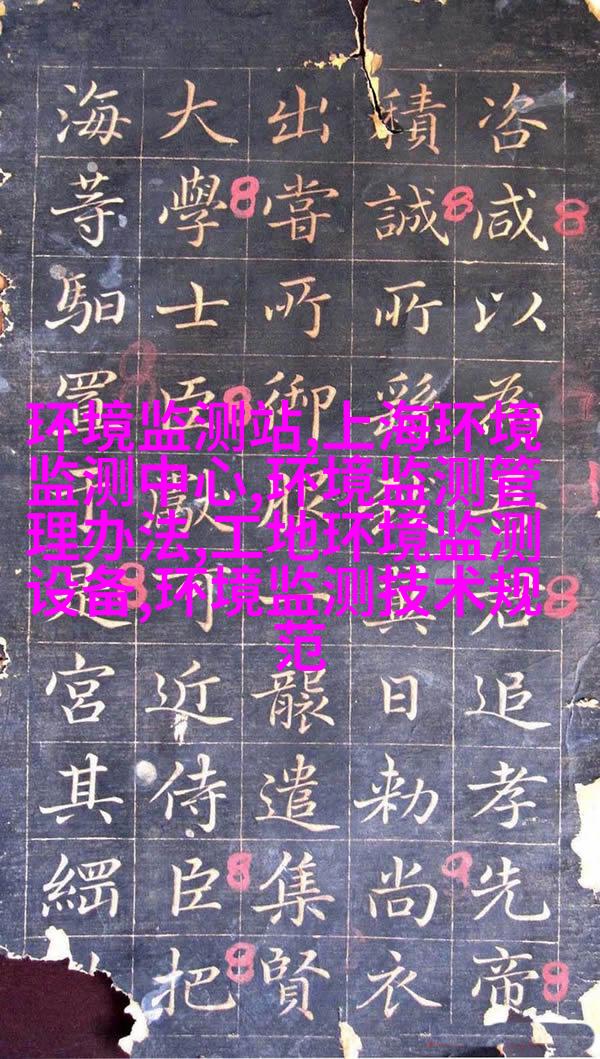 咨咸以為君追孝先帝
積誠所其日勅尚衣
出嘗所御服襲遣集賢
大學士臣獻司近侍臣把
海等馹置是宮其綱
环境监测站,上海环境
监测中心,环境监测管
理办法,工地环境监测
设备,环境监测技术规
范